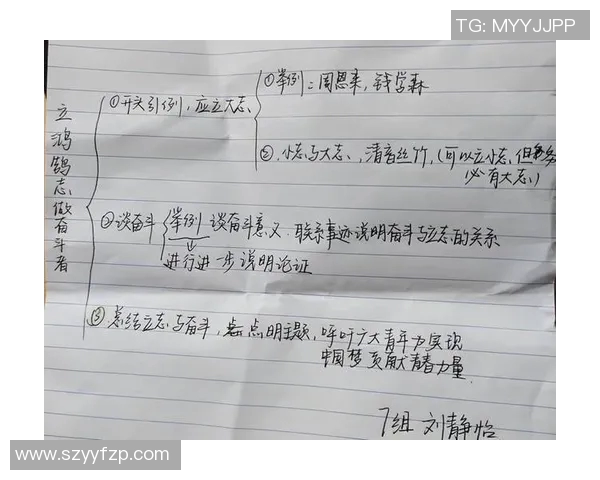 TG: MYYJJPP
立鸿鹄志,做奋斗者
①开头引例,应立大志
①举例:周恩来,钱学森
②.小志与大志,清音丝竹,(可以立小志,但
必有大志)
②谈奋斗
举例 谈奋斗意义.联系事迹说明奋斗与立志的关系
进行进一步说明论证
③总结立志与奋斗,点明主题,呼吁广大青年为实现
中国梦贡献青春力量.
7组 刘静怡
www.szyyfzp.com